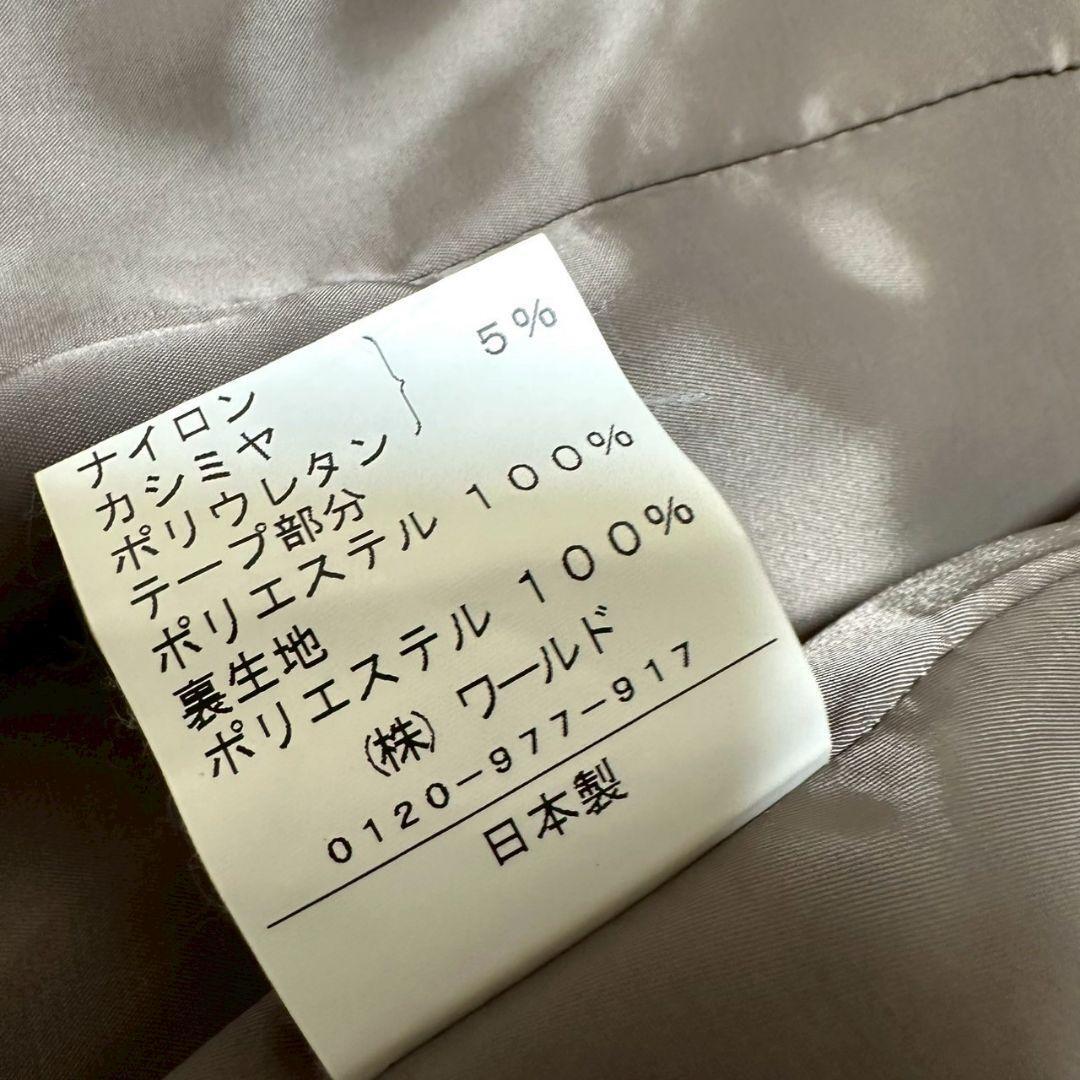 ナイロン
カシミヤ } 5%
ポリウレタン
テープ部分
ポリエステル 100%
裏生地
ポリエステル 100%
(株) ワールド
0120-977-917
日本製